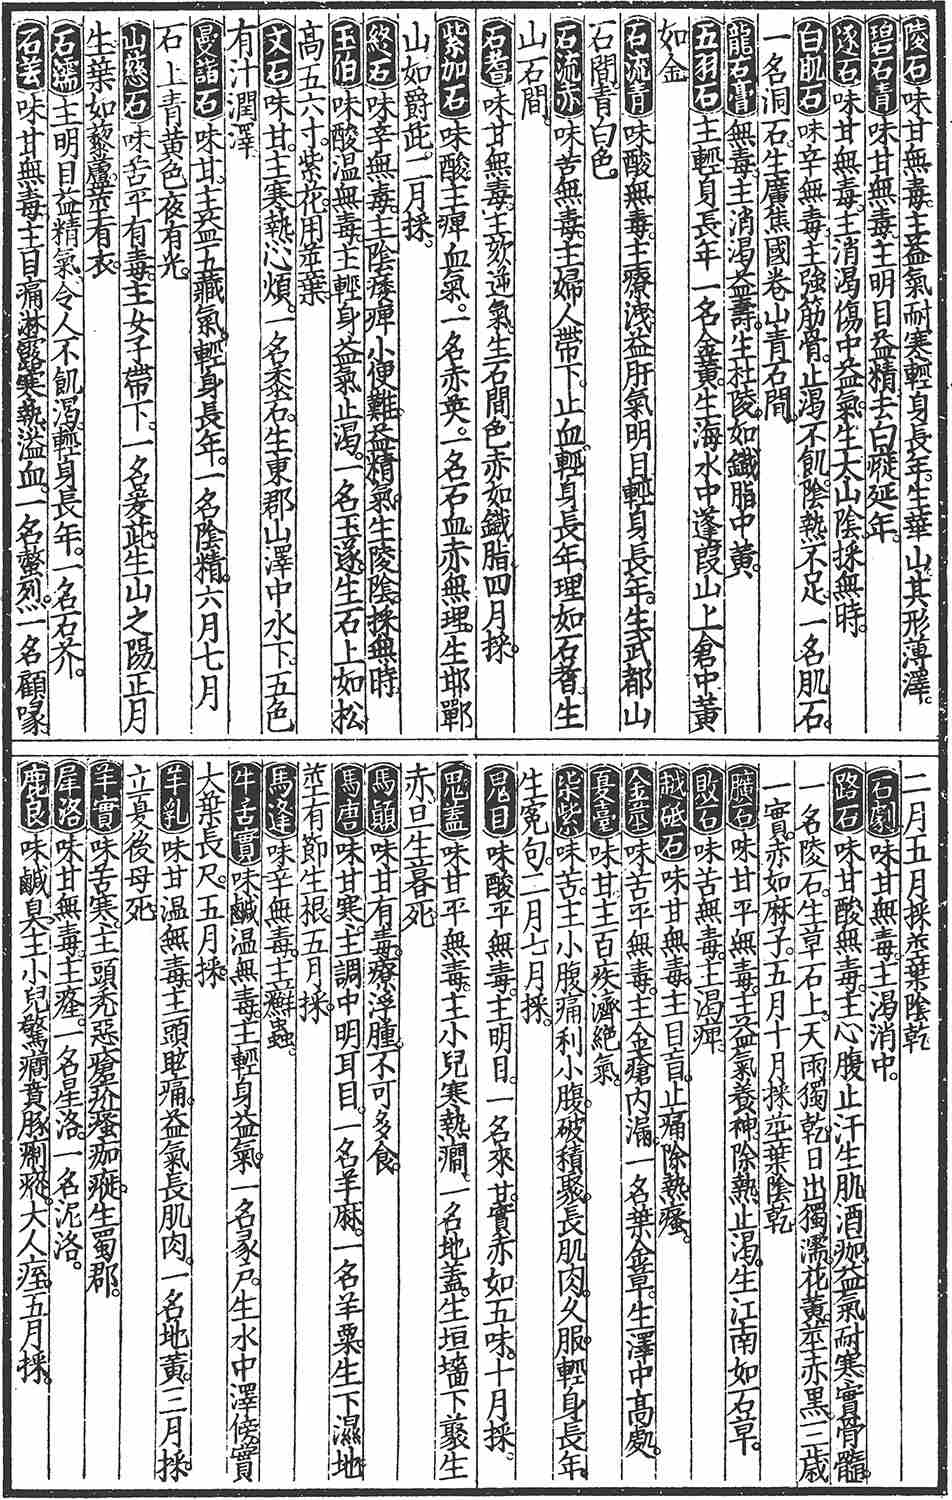 陵石味甘無毒主益氣耐寒輕身長年生華山其形薄澤
碧石青味甘無毒主明目益精去白㿈延年
遂石味甘無毒主消渴傷中益氣生太山陰採無時
白肌石味辛無毒主強筋骨止渴不飢陰熱不足一名肌石
一名洞石生廣焦國卷山青石間
龍石膏無毒主消渴益壽生杜陵如鐵脂中黃
五羽石主輕身長年一名金黃生海水中蓬葭山上倉中黃
如金
石流青味酸無毒主療洩益肝氣明目輕身長年生武都山
石間青白色
石流赤味苦無毒主婦人帶下止血輕身長年理如石耆生
山石間
石耆味甘無毒主欬逆氣生石間色赤如鐵脂四月採
紫加石味酸主痺血氣一名赤英一名石血赤無理生邯鄲
山如爵茈二月採
終石味辛無毒主陰痿痺小便難益精氣生陵陰採無時
玉伯味酸溫無毒主輕身益氣止渴一名玉遂生石上如松
高五六寸紫花用莖葉
文石味甘主寒熱心煩一名黍石生東郡山澤中水下五色
有汁潤澤
曼諸石味甘主益五藏氣輕身長年一名陰精六月七月
石上青黃色夜有光
山慈石味苦平有毒主女子帶下一名爰茈生山之陽正月
生葉如藜蘆莖有衣
石濡主明目益精氣令人不飢渴輕身長年一名石芥
石芸味甘無毒主目痛淋露寒熱溢血一名螫烈一名顧喙
二月五月採莖葉陰乾
石劇味甘無毒主渴消中
路石味甘酸無毒主心腹止汗生肌酒痂益氣耐寒實骨髓
一名陵石生草石上天雨獨乾日出獨濡花黃莖赤黑三歲
一實赤如麻子五月十月採莖葉陰乾
曠石味甘平無毒主益氣養神除熱止渴生江南如石草
敗石味苦無毒主渴痺
越砥石味甘無毒主目盲止痛除熱瘙
金莖味苦平無毒主金瘡內漏一名葉金草生澤中高處
夏臺味甘主百疾濟絕氣
柒紫味苦主小腹痛利小腹破積聚長肌肉久服輕身長年
生冤句二月七月採
鬼目味酸平無毒主明目一名來甘實赤如五味十月採
鬼蓋味甘平無毒主小兒寒熱癇一名地蓋生垣墻下藂生
赤旦生暮死
馬顛味甘有毒療浮腫不可多食
馬唐味甘寒主調中明耳目一名羊麻一名羊粟生下濕地
莖有節生根五月採
馬逢味辛無毒主癬蟲
牛舌實味鹹溫無毒主輕身益氣一名彖尸生水中澤傍實
大葉長尺五月採
羊乳味甘溫無毒主頭眩痛益氣長肌肉一名地黃三月採
立夏後母死
羊實味苦寒主頭禿惡瘡疥瘙痂㿈生蜀郡
犀洛味甘無毒主㾖一名星洛一名泥洛
鹿良味鹹臭主小兒驚癇賁豚瘛瘲大人痓五月採